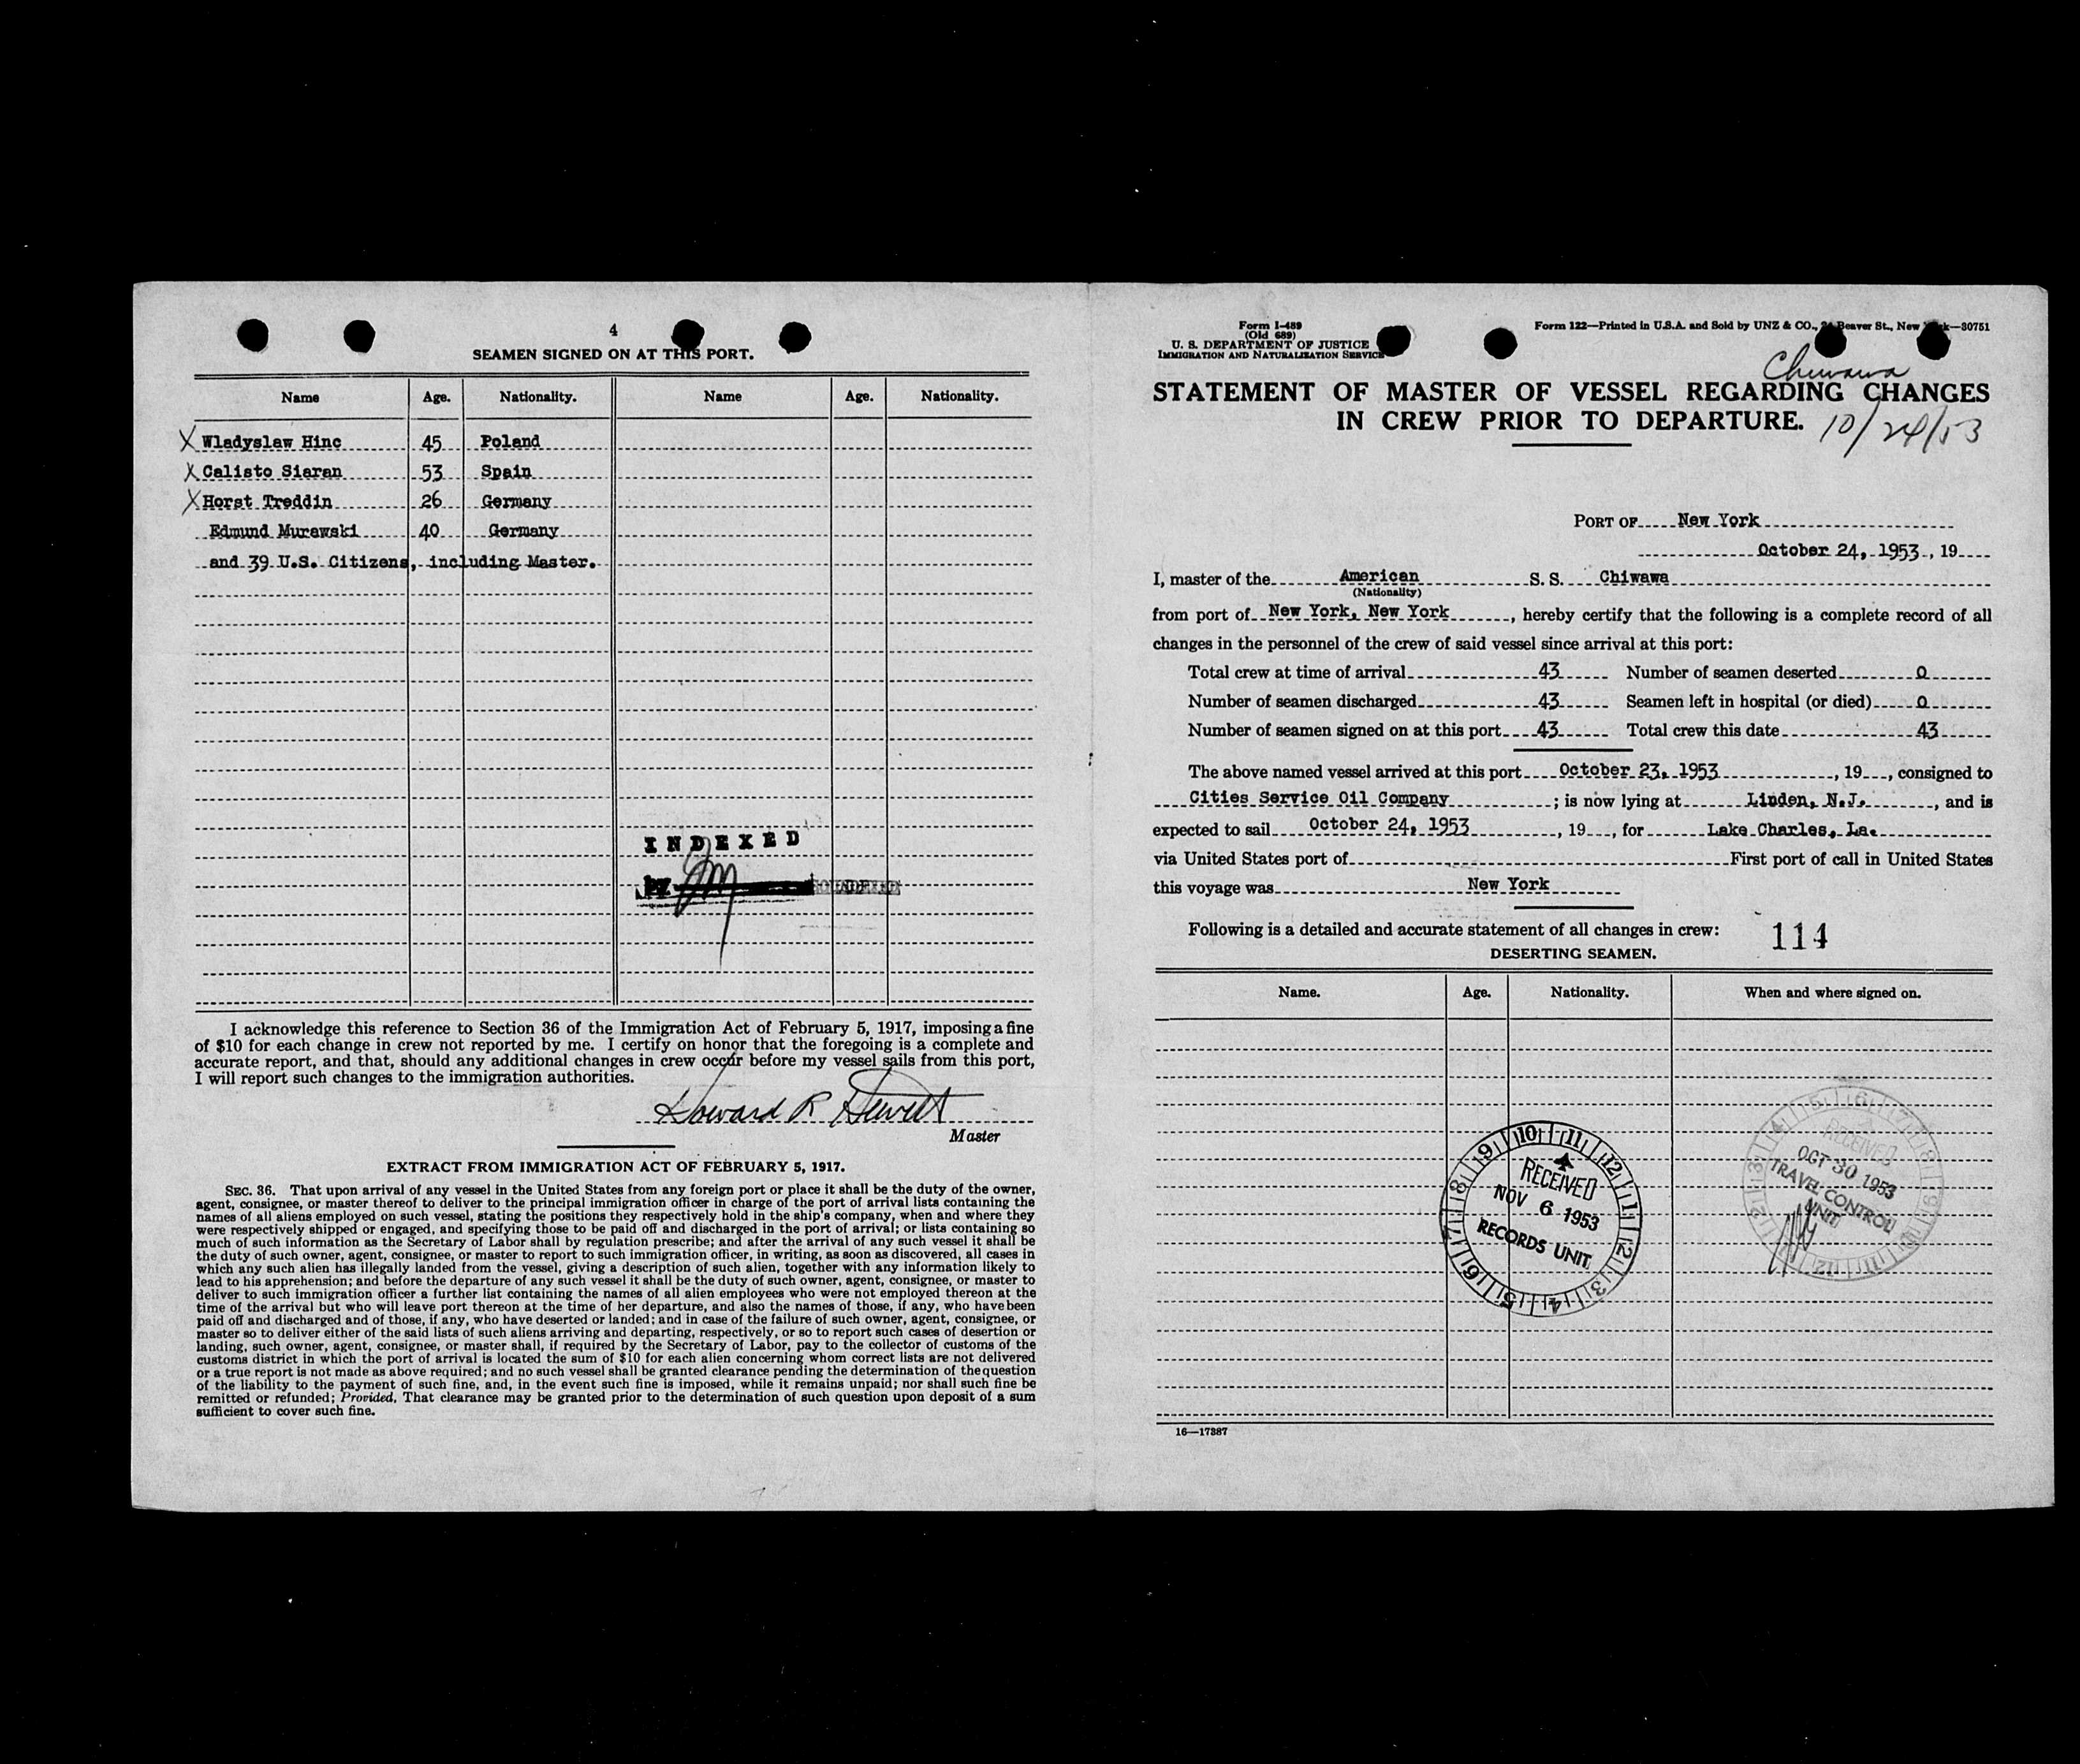 4
SEAMEN SIGNED ON AT THIS PORT.
Name Age. Nationality. Name Age. Nationality.
X Wladyslaw Hinc 45 Poland
X Calisto Siaran 53 Spain
X Horst Treddin 26 Germany
Edmund Murawski 40 Germany
and 39 U.S. Citizens, including Master.
INDEXED
I acknowledge this reference to Section 36 of the Immigration Act of February 5, 1917, imposing a fine
of $10 for each change in crew not reported by me. I certify on honor that the foregoing is a complete and
accurate report, and that, should any additional changes in crew occur before my vessel sails from this port,
I will report such changes to the immigration authorities.
Howard R
Master
EXTRACT FROM IMMIGRATION ACT OF FEBRUARY 5, 1917.
SEC. 36. That upon arrival of any vessel in the United States from any foreign port or place it shall be the duty of the owner,
agent, consignee, or master thereof to deliver to the principal immigration officer in charge of the port of arrival lists containing the
names of all aliens employed on such vessel, stating the positions they respectively hold in the ship's company, when and where they
were respectively shipped or engaged, and specifying those to be paid off and discharged in the port of arrival; or lists containing so
much of such information as the Secretary of Labor shall by regulation prescribe; and after the arrival of any such vessel it shall be
the duty of such owner, agent, consignee, or master to report to such immigration officer, in writing, as soon as discovered, all cases in
which any such alien has illegally landed from the vessel, giving a description of such alien, together with any information likely to
lead to his apprehension; and before the departure of any such vessel it shall be the duty of such owner, agent, consignee, or master to
deliver to such immigration officer a further list containing the names of all alien employees who were not employed thereon at the
time of the arrival but who will leave port thereon at the time of her departure, and also the names of those, if any, who have been
paid off and discharged and of those, if any, who have deserted or landed; and in case of the failure of such owner, agent, consignee, or
master so to deliver either of the said lists of such aliens arriving and departing, respectively, or so to report such cases of desertion or
landing, such owner, agent, consignee, or master shall, if required by the Secretary of Labor, pay to the collector of customs of the
customs district in which the port of arrival is located the sum of $10 for each alien concerning whom correct lists are not delivered
or a true report is not made as above required; and no such vessel shall be granted clearance pending the determination of the question
of the liability to the payment of such fine, and, in the event such fine is imposed, while it remains unpaid; nor shall such fine be
remitted or refunded; Provided, That clearance may be granted prior to the determination of such question upon deposit of a sum
sufficient to cover such fine.
Form I-489
(Old 689)
U. S. DEPARTMENT OF JUSTICE
IMMIGRATION AND NATURALIZATION SERVICE
Form 122—Printed in U.S.A. and Sold by UNZ & CO., Beaver St., New —30751
Chiwawa
STATEMENT OF MASTER OF VESSEL REGARDING CHANGES
IN CREW PRIOR TO DEPARTURE.
10/24/53
PORT OF New York
October 24, 1953, 19
I, master of the American S. S. Chiwawa
(Nationality)
from port of New York, New York, hereby certify that the following is a complete record of all
changes in the personnel of the crew of said vessel since arrival at this port:
Total crew at time of arrival 43 Number of seamen deserted 0
Number of seamen discharged 43 Seamen left in hospital (or died) 0
Number of seamen signed on at this port 43 Total crew this date 43
The above named vessel arrived at this port October 23, 1953, 19, consigned to
Cities Service Oil Company; is now lying at Linden, N.J., and is
expected to sail October 24, 1953, 19, for Lake Charles, La.
via United States port of First port of call in United States
this voyage was New York
Following is a detailed and accurate statement of all changes in crew:
114
DESERTING SEAMEN.
Name. Age. Nationality. When and where signed on.
RECEIVED
NOV 6 1953
RECORDS UNIT
RECEIVED
OCT 30 1953
TRAVEL CONTROL
UNIT
16—17387